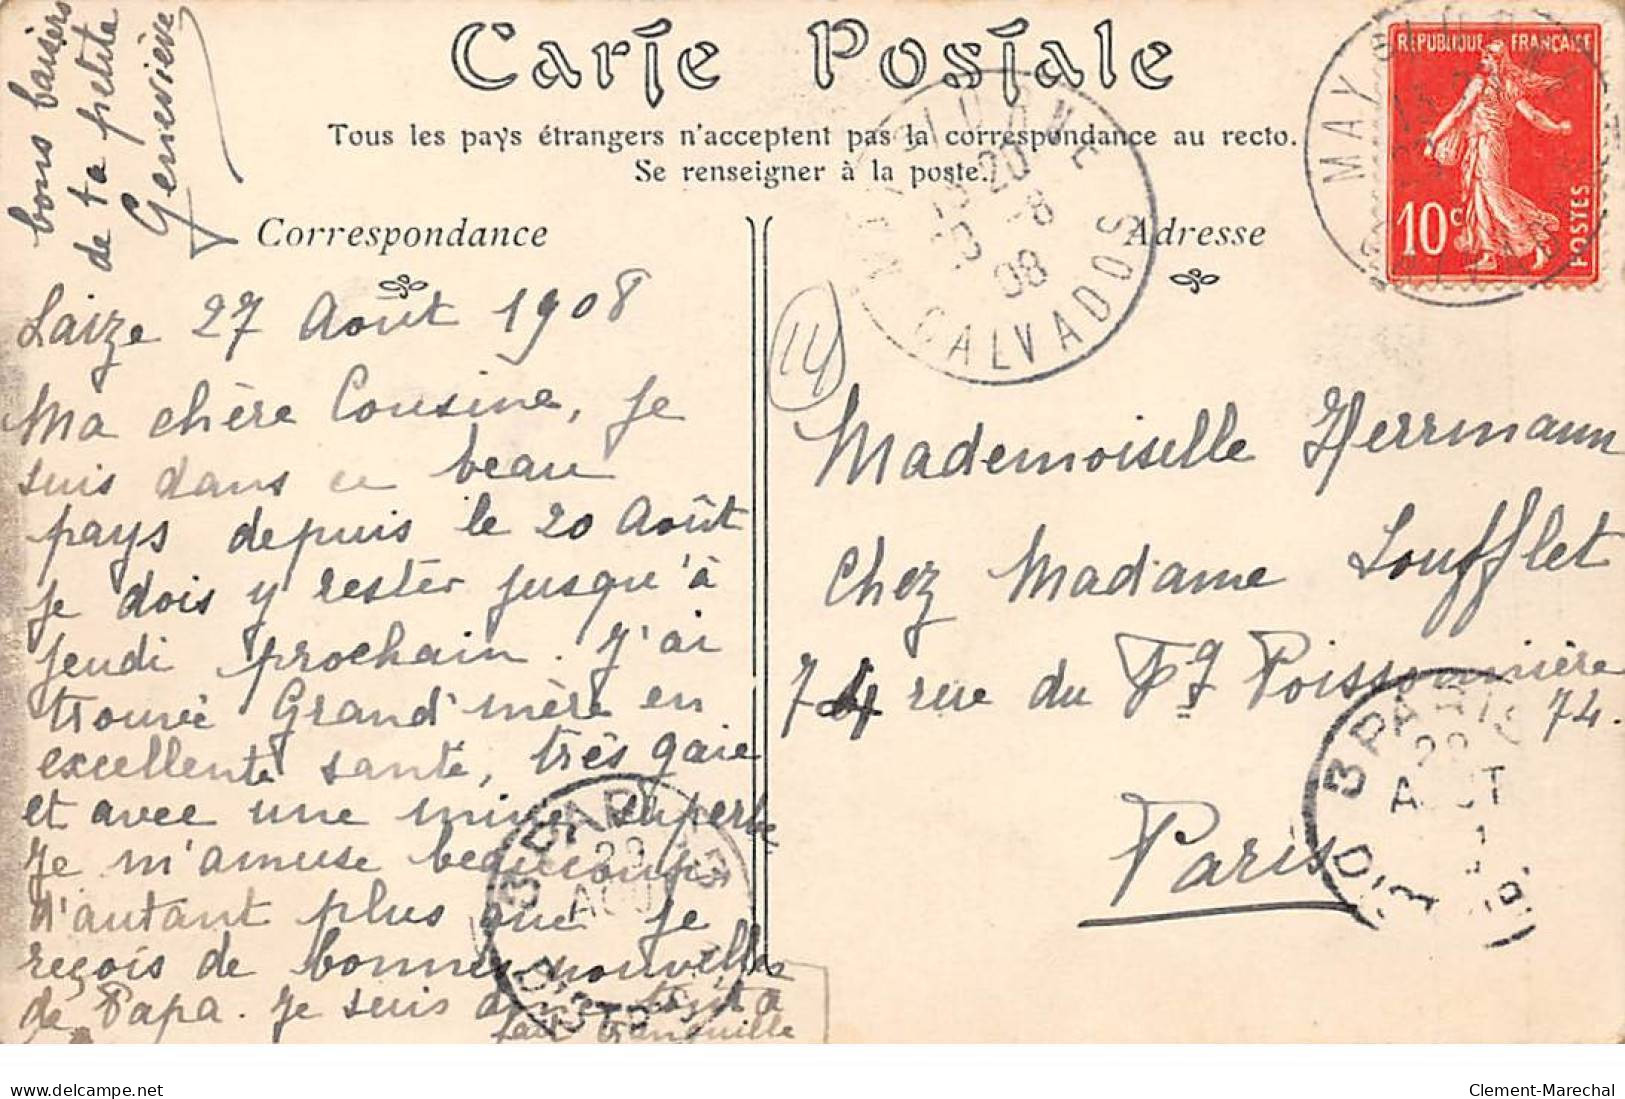 bons baisers
de ta petite
Geneviève
Carte Postale
Tous les pays étrangers n'acceptent pas la correspondance au recto.
Se renseigner à la poste.
Correspondance
Laize 27 Août 1908
Ma chère Cousine, je
suis dans ce beau
pays depuis le 20 Août
je dois y rester jusqu'à
jeudi prochain. J'ai
trouvé Grand'mère en
excellente santé, très gaie
et avec une mine superbe
Je m'amuse beaucoup
d'autant plus que je
reçois de bonnes nouvelles
de Papa. Je suis donc tout à
fait tranquille
Adresse
RÉPUBLIQUE FRANÇAISE
10c
POSTES
MAY
CALVADOS
20
-8
08
14
Mademoiselle Herrmann
chez Madame Soufflet
74 rue du Fg Poissonnière
74.
Paris
PARIS
AOUT
delcampe.net
Clement-Marechal